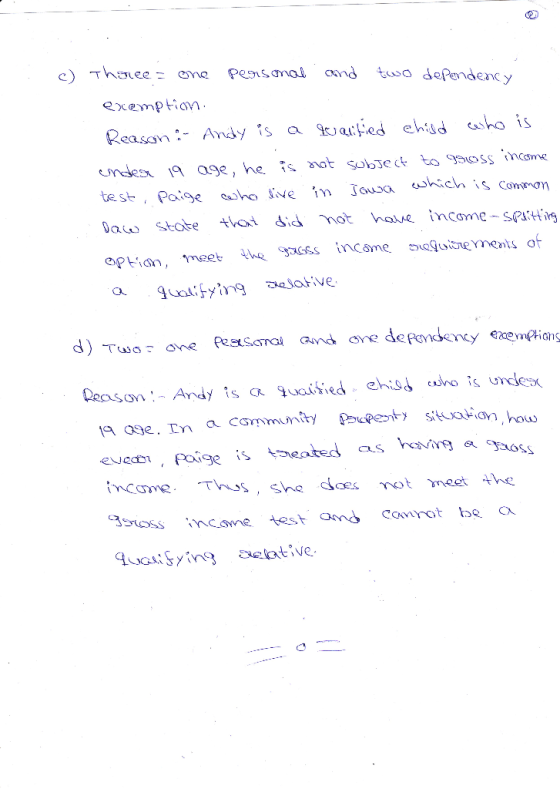 2
c) Three = one personal and two dependency
exemption.
Reason :- Andy is a qualified child who is
under 19 age, he is not subject to gross income
test, Paige who live in Iowa which is common
Law state that did not have income-splitting
option, meet the gross income requirements of
a qualifying relative.
d) Two = one personal and one dependency exemptions
Reason :- Andy is a qualified child who is under
19 age. In a community property situation, how
ever, Paige is treated as having a gross
income. Thus, she does not meet the
gross income test and cannot be a
qualifying relative.